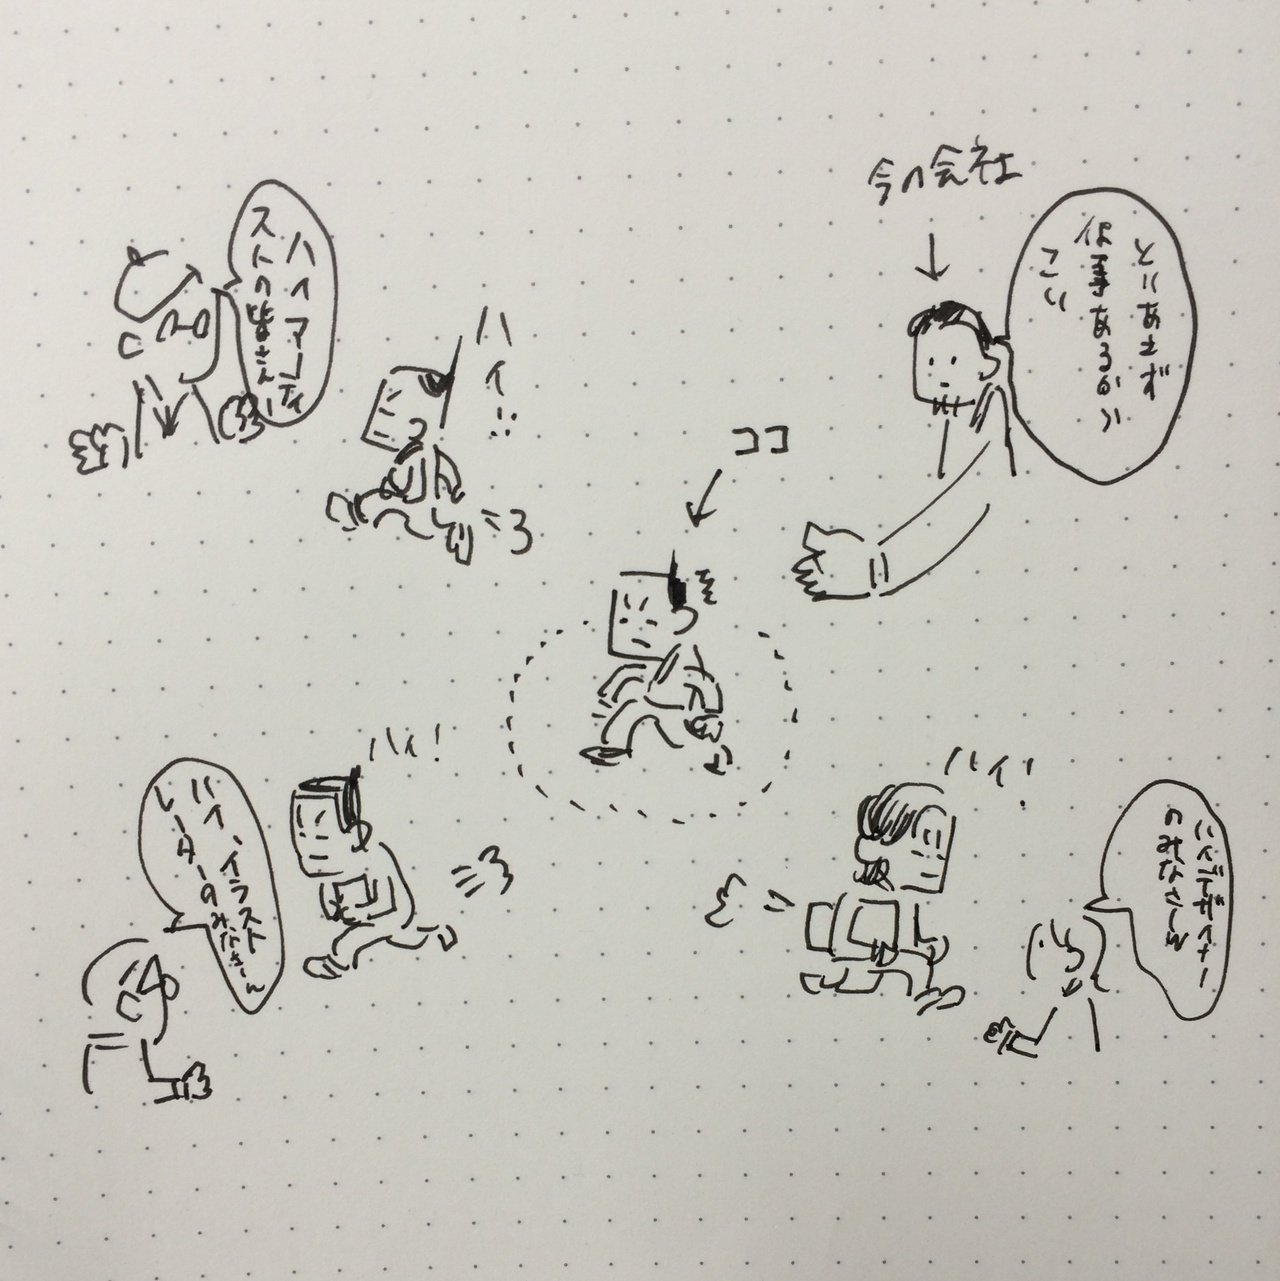 今の会社
とりあえず
仕事あるから
こい
ハイマンガ
ストの皆さーん
ハイ
ココ
ハイ!
ハイ、イラスト
レーターのみなさーん
ハイ!
デザイナー
のみなさーん